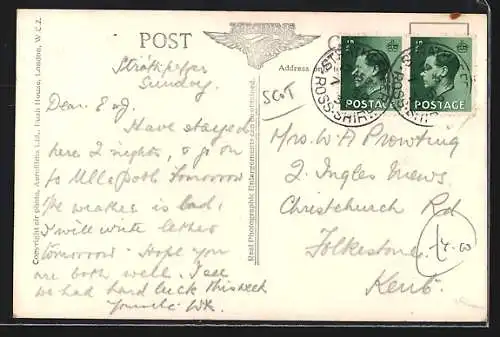 POST
Address on
Strathpeffer
Sunday.
Dear E &
Have stayed
here 2 nights, & go on
to Ullapool tomorrow
The weather is bad,
I will write letter
tomorrow - Hope you
are both well. I see
we had hard luck this week
SCOT
Mrs. W A Prowting
2. Ingles Mews.
Christchurch Rd
Folkestone.
Kent.
POSTAGE
POSTAGE
ROSS-SHIRE
Copyright air photo, Aerofilms Ltd., Bush House, London, W.C.2.
Real Photographic Enlargements can be obtained.